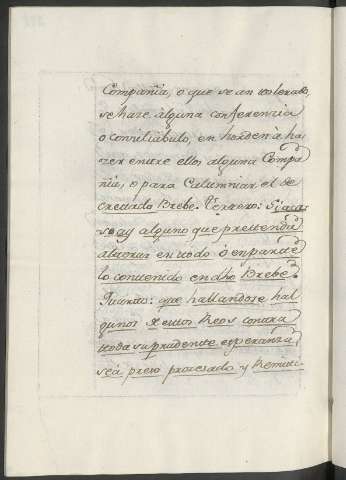 Compañia, o que sean tolerados,
se hace alguna conferencia
o conciliabulo, en horden à ha-
zer entre ellos alguna Compa-
ñia, o para Calumniar el de
creatado Brebe. Terzero: Si acas-
so ay alguno que pretenda
aluorar en todo ò en parte
lo contenido en dho Brebe.
Quarto: que hallandose hal-
gunos de estos Reos contra
toda su prudente esperanza,
sea preso procesado y Remiti-